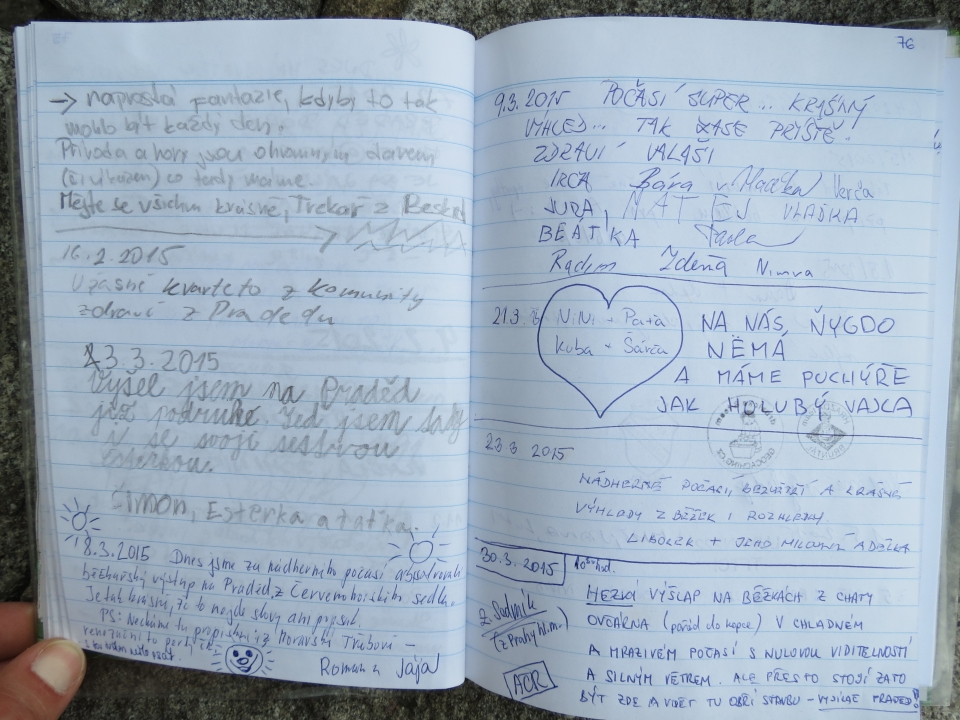 → naprostá fantazie, kdyby to tak
mohlo být každý den.
Příroda a hory jsou ohromným darem
co tady máme.
Mějte se všichni krásně, Trekař z Beskyd
16.2.2015
Úžasné kvarteto z komunity
zdraví z Pradědu
3.3.2015
Vyšel jsem na Praděd
již podruhé. Jed jsem tady
i se svojí sestrou
Esterkou.
Šimon, Esterka a taťka.
8.3.2015 Dnes jsme za nádherného počasí absolvovali
běžkařský výstup na Praděd z Červenohorského sedla.
Je tak krásně, že to nejde slovy ani popsat.
PS: Necháme tu propisku i z Moravské Třebové –
Roman a Jája
76
9.3.2015 POČASÍ SUPER... KRÁSNÝ
VÝHLED... TAK ZASE PŘÍŠTĚ!
ZDRAVÍ VALAŠI
IRČA Bára Verča
JURA, MATĚJ VLAĎKA
BEÁTKA Pavla
Radim Zdena
21.3. NiNi + Paťa
Kuba + Šárča
NA NÁS, ŇYGDO
NĚMÁ
A MÁME PUCHÝŘE
JAK HOLUBÝ VAJCA
23 3 2015
NÁDHERNÉ POČASÍ, BEZVĚTŘÍ A KRÁSNÉ
VÝHLEDY Z BĚŽEK I ROZHLEDNY
LIBOREK + JEHO MILOVANÁ ADÉLKA
30.3.2015 10 hod.
HEZKÁ VÝŠLAP NA BĚŽKÁCH Z CHATY
OVČÁRNA (pořád do kopce) V CHLADNÉM
A MRAZIVÉM POČASÍ S NULOVOU VIDITELNOSTÍ
A SILNÝM VĚTREM. ALE PŘESTO STOJÍ ZATO
BÝT ZDE A VIDĚT TU OBŘÍ STAVBU –
Z
(z Prahy hl.m.)
AČR